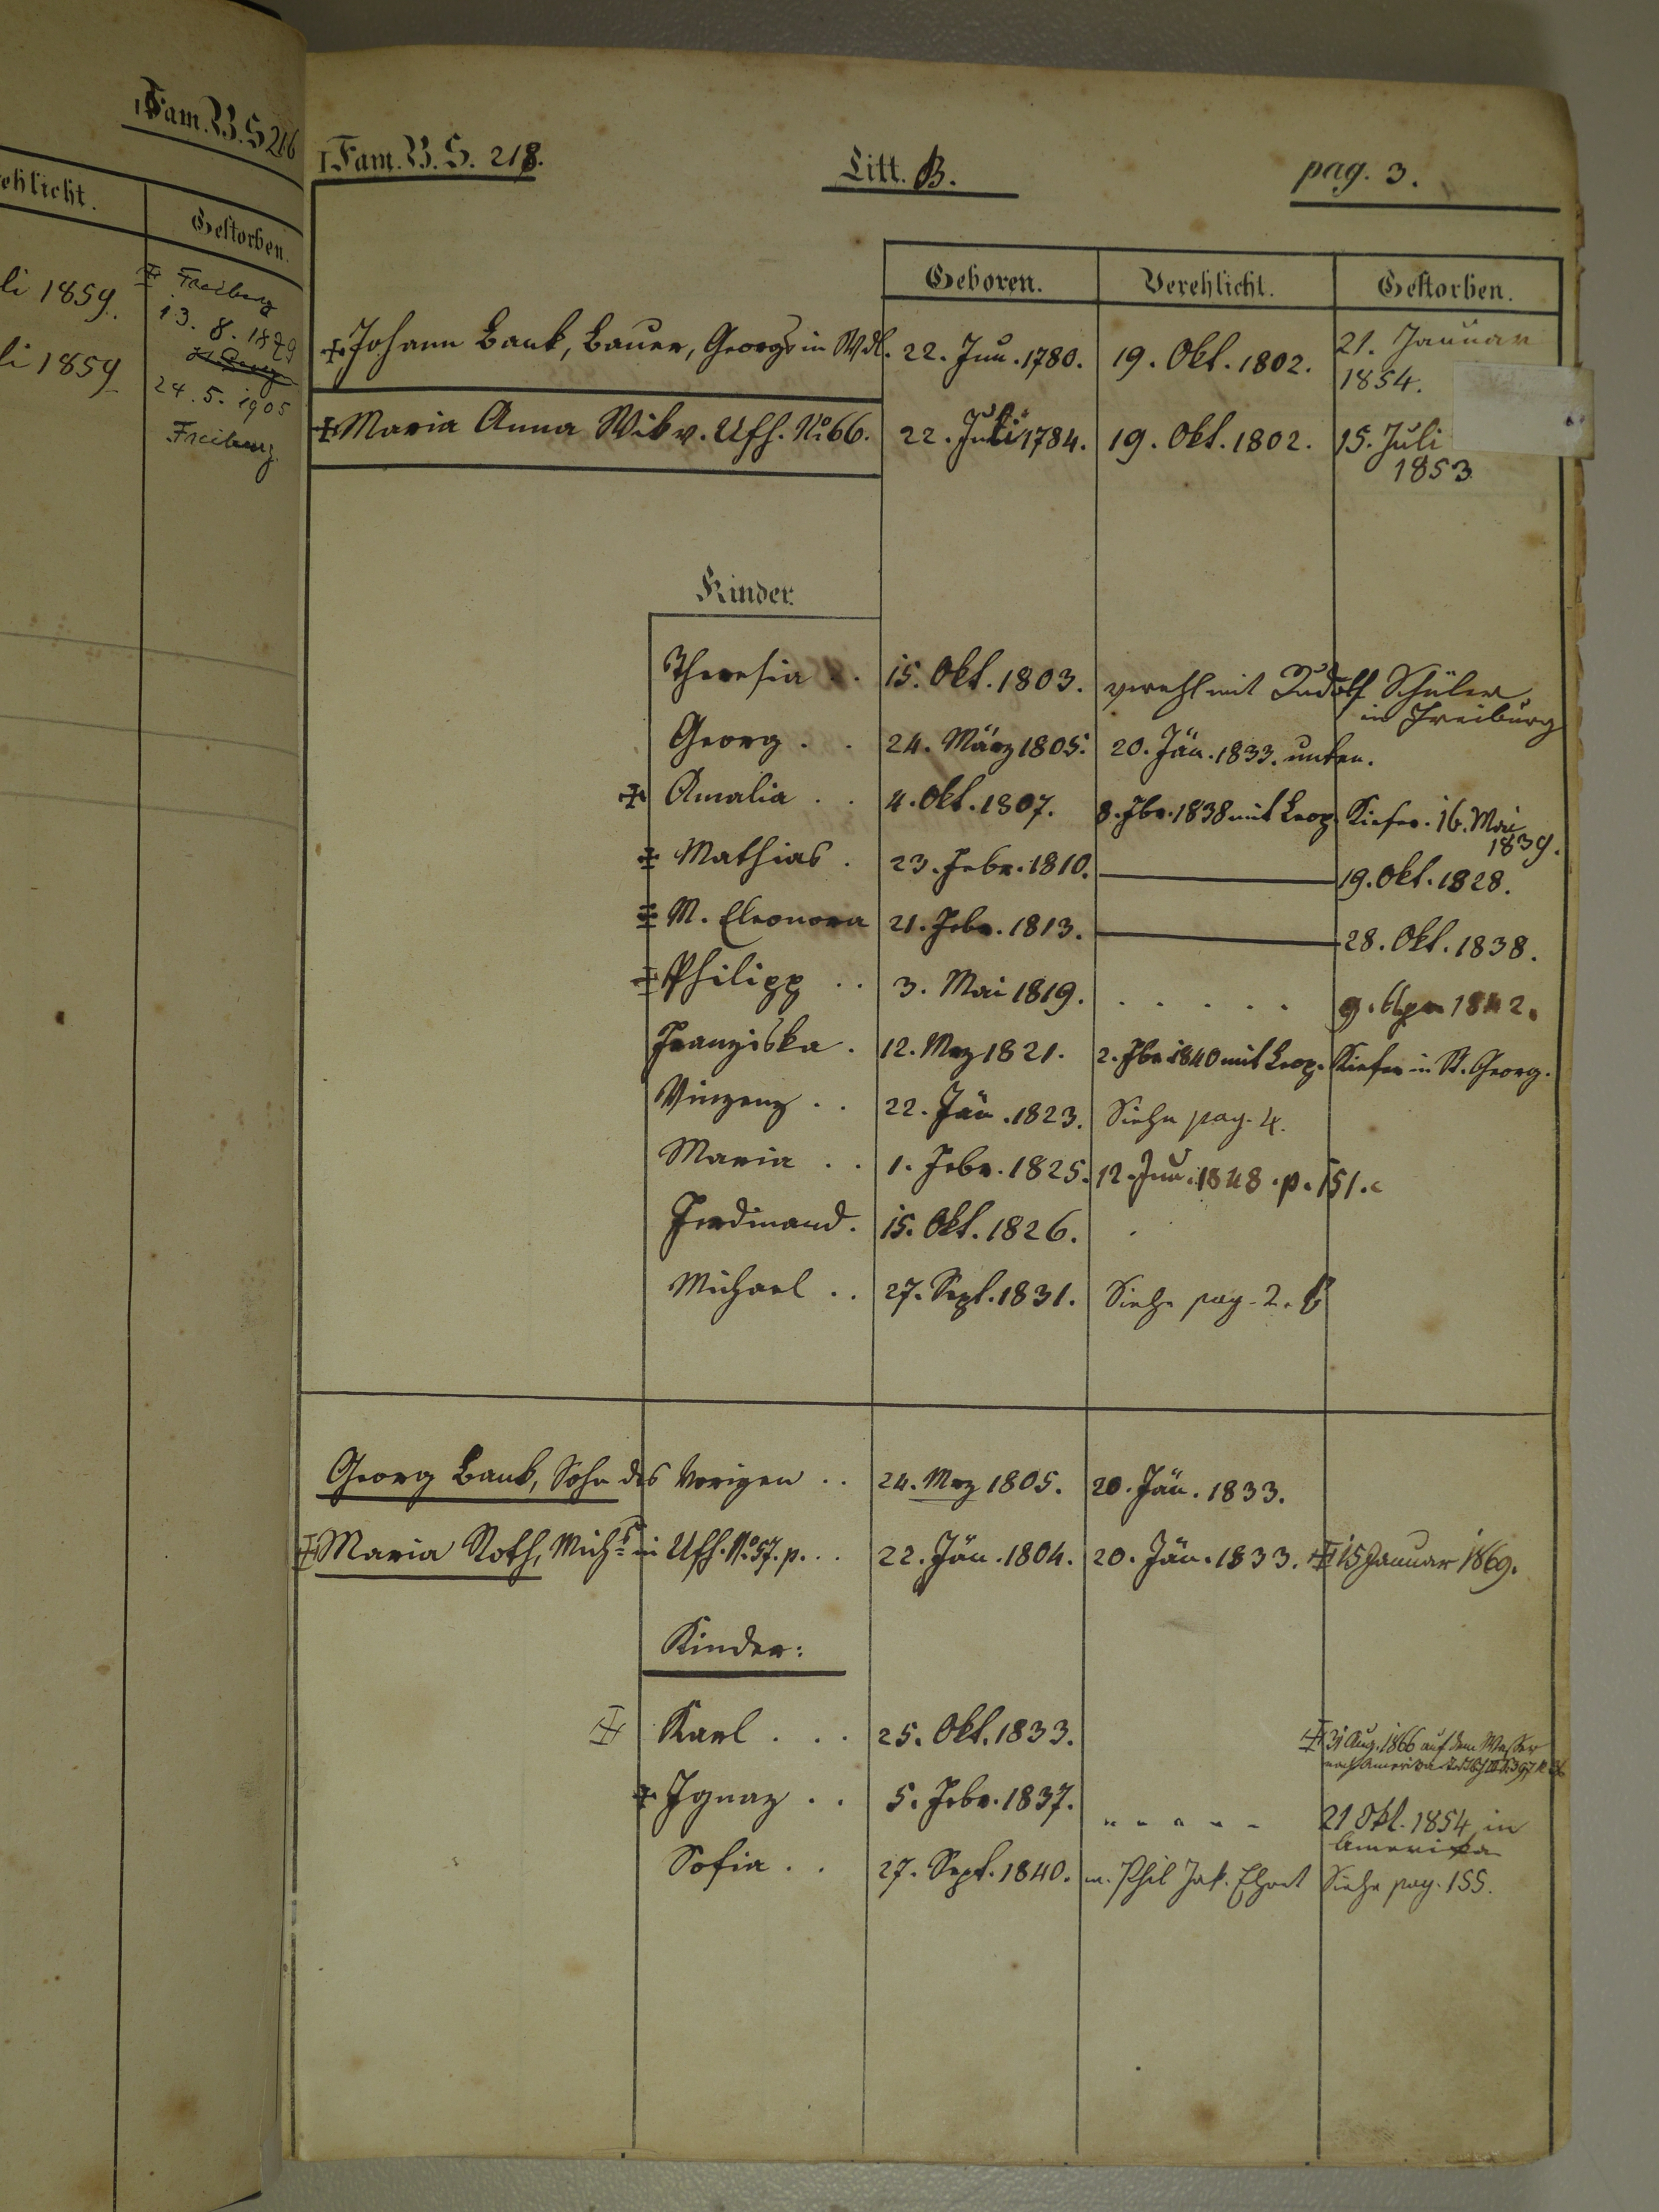 I Fam. B. S 216
ehlicht.
Gestorben.
li 1859.
Freiburg
13. 8. 1879
li 1859
24. 5. 1905
Freiburg
I Fam. B. S. 218.
Litt. B.
pag. 3.
Geboren. Verehlicht. Gestorben.
Johann Bank, Bauer, Georgs in Wdl. 22. Jun. 1780. 19. Okt. 1802. 21. Januar 1854.
Maria Anna Wib v. Ufh. No 66. 22. Juli 1784. 19. Okt. 1802. 15. Juli 1853
Kinder.
Theresia . . 15. Okt. 1803. verehl mit Rudolf Schüler in Freiburg
Georg . . 24. März 1805. 20. Jän. 1833. unten.
Amalia . . 4. Okt. 1807. 8. Fbr. 1838 mit Leop. Kiefer. 16. Mai 1839.
Mathias . 23. Febr. 1810. 19. Okt. 1828.
M. Eleonora 21. Febr. 1813. 28. Okt. 1838.
Philipp . . 3. Mai 1819. . . . . . 9. Apr 1842.
Franziska . 12. Mrz 1821. 2. Fbr. 1840 mit Leop. Kiefer in St. Georg.
Vinzenz . . 22. Jän. 1823. Siehe pag. 4.
Maria . . 1. Febr. 1825. 12. Jun. 1848. p. 151.
Ferdinand. 15. Okt. 1826.
Michael . . 27. Sept. 1831. Siehe pag. 2.
Georg Bank, Sohn des Vorigen . . 24. Mrz 1805. 20. Jän. 1833.
Maria Roth, Michs in Ufh. No 57. p. . . 22. Jän. 1804. 20. Jän. 1833. 15 Januar 1869.
Kinder:
Karl . . . 25. Okt. 1833. 31 Aug. 1866 auf dem Wasser
nach Amerika
Ignaz . . 5. Febr. 1837. 21 Okt. 1854 in Amerika
Sofia . . 27. Sept. 1840. m. Phil Jak. Ehret Siehe pag. 155.